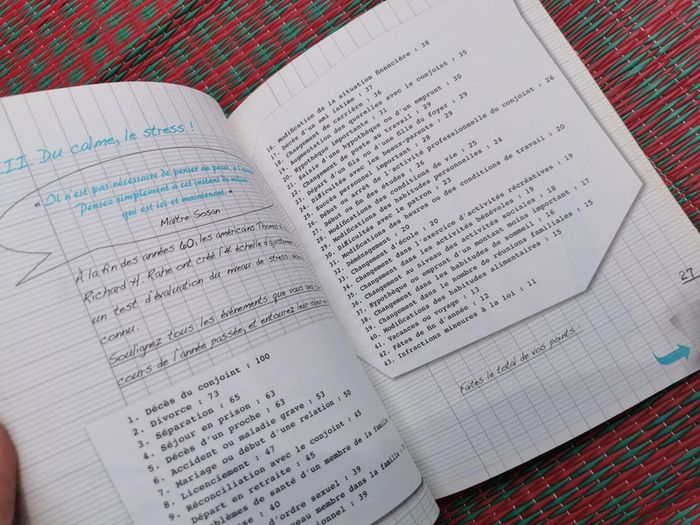 III. Du calme, le stress !
" Il n'est pas nécessaire de penser au passé, à
Pensez simplement à cet instant du milieu
qui est ici et maintenant. "
Maître Sosan
À la fin des années 60, les américains Thomas
Richard H. Rahe ont créé l'« échelle
un test d'évaluation du niveau de stress,
connu.
Soulignez tous les événements que vous
cours de l'année passée, et entourez leur
1. Décès du conjoint : 100
2. Divorce : 73
3. Séparation : 65
4. Séjour en prison : 63
5. Décès d'un proche : 63
6. Accident ou maladie grave : 53
7. Mariage ou début d'une relation : 50
8. Licenciement : 47
9. Réconciliation avec le conjoint : 45
Départ en retraite : 45
de santé d'un membre de la famille
: 40
d'ordre sexuel : 39
membre dans la famille :
: 39
16. Modification de la situation financière : 38
17. Décès d'un ami intime : 37
18. Changement de carrière : 36
19. Augmentation des querelles avec le conjoint : 35
20. Hypothèque importante : 31
21. Saisie d'une hypothèque ou d'un emprunt : 30
22. Changement de poste au travail : 29
23. Départ d'un fils ou d'une fille du foyer : 29
24. Difficultés avec les beaux-parents : 29
25. Succès personnel important : 28
26. Début ou arrêt de l'activité professionnelle du conjoint : 26
27. Début ou fin des études : 26
28. Modifications des conditions de vie : 25
29. Modifications des habitudes personnelles : 24
30. Difficultés avec le patron : 23
31. Modifications des heures ou des conditions de travail : 20
32. Déménagement : 20
33. Changement d'école : 20
34. Changement dans l'exercice d'activités récréatives : 19
35. Changement dans les activités bénévoles : 19
36. Changement au niveau des activités sociales : 18
37. Hypothèque ou emprunt d'un montant moins important : 17
38. Changement dans les habitudes de sommeil : 16
39. Changement dans le nombre de réunions familiales : 15
40. Modifications des habitudes alimentaires : 15
41. Vacances ou voyage : 13
42. Fêtes de fin d'année : 12
43. Infractions mineures à la loi : 11
Faites le total de vos points :
27